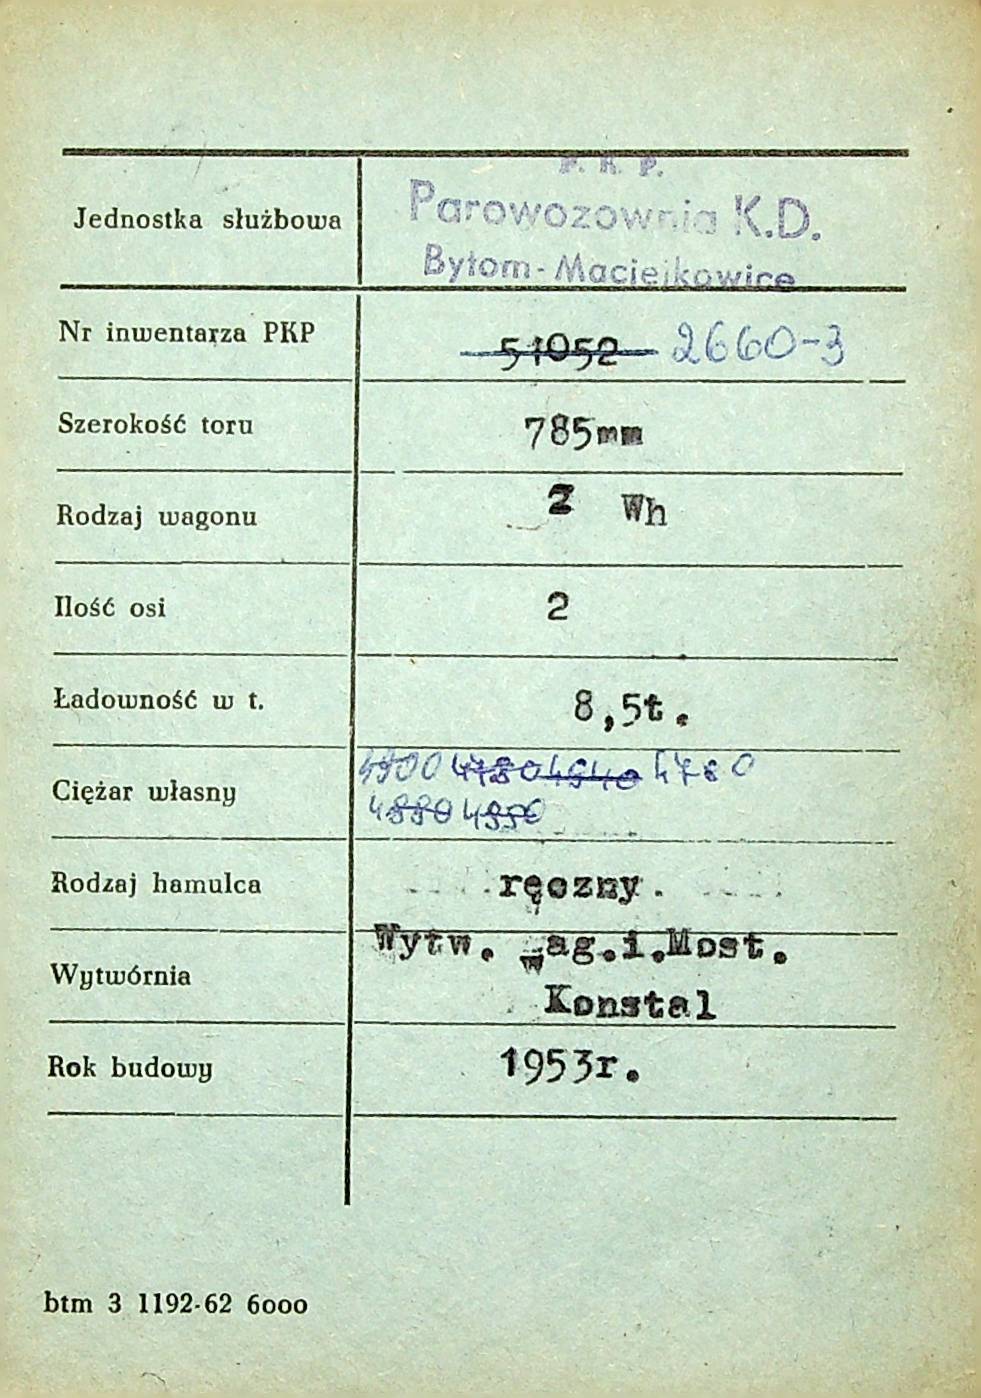 P. K. P.
Jednostka służbowa Parowozownia K.D.
Bytom-Maciejkowice
Nr inwentarza PKP 51052 2660-3
Szerokość toru 785mm
Rodzaj wagonu 2 Wh
Ilość osi 2
Ładowność w t. 8,5t.
4780 4840 4760
Ciężar własny
4880
Rodzaj hamulca ręczny.
Wytw. Wag.i.Most.
Wytwórnia
Konstal
Rok budowy 1953r.
btm 3 1192-62 6000